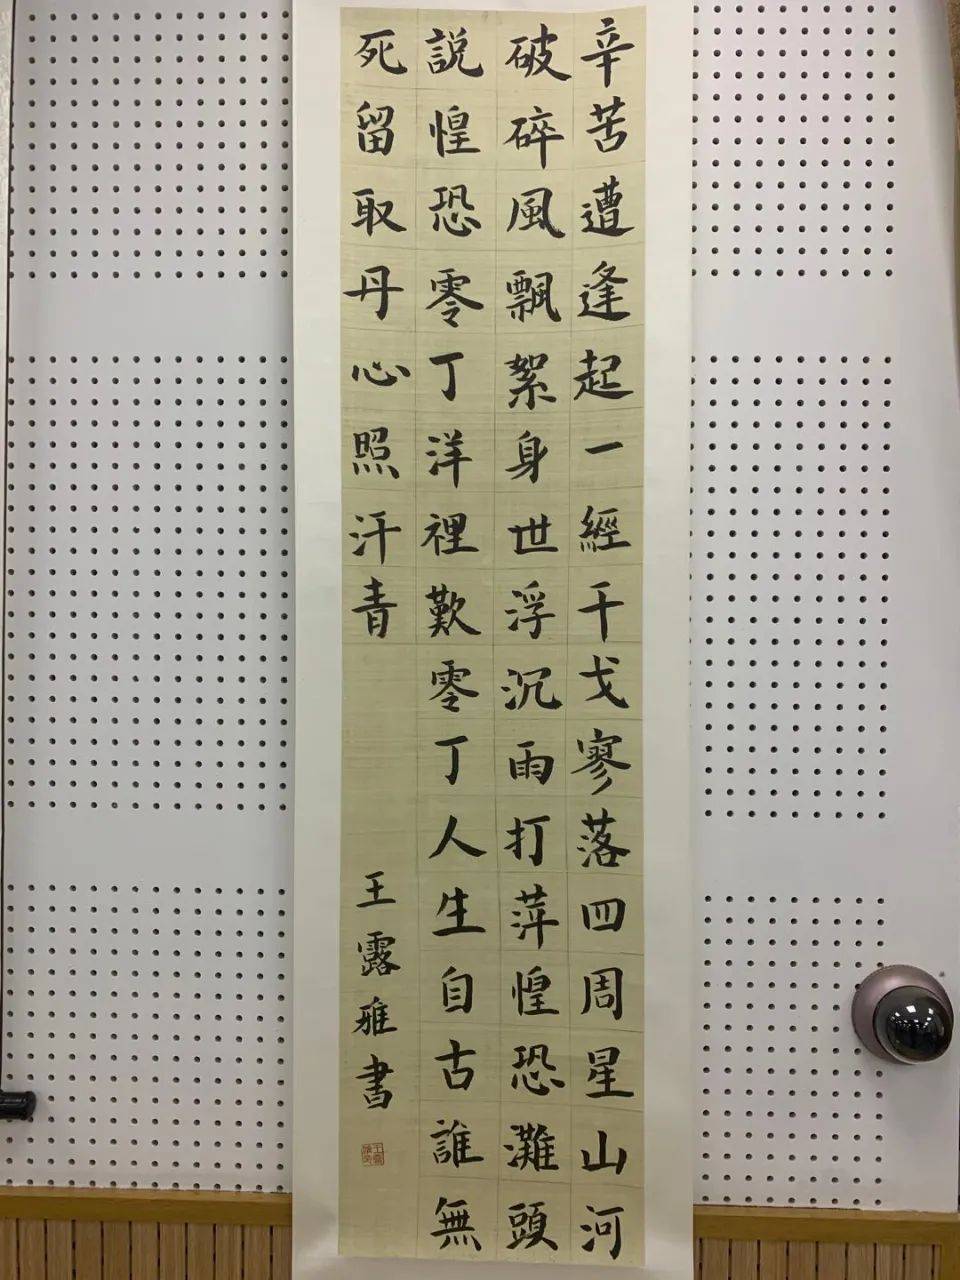 辛苦遭逢起一經干戈寥落四周星山河
破碎風飄絮身世浮沉雨打萍惶恐灘頭
說惶恐零丁洋裡歎零丁人生自古誰無
死留取丹心照汗青
王露雅書